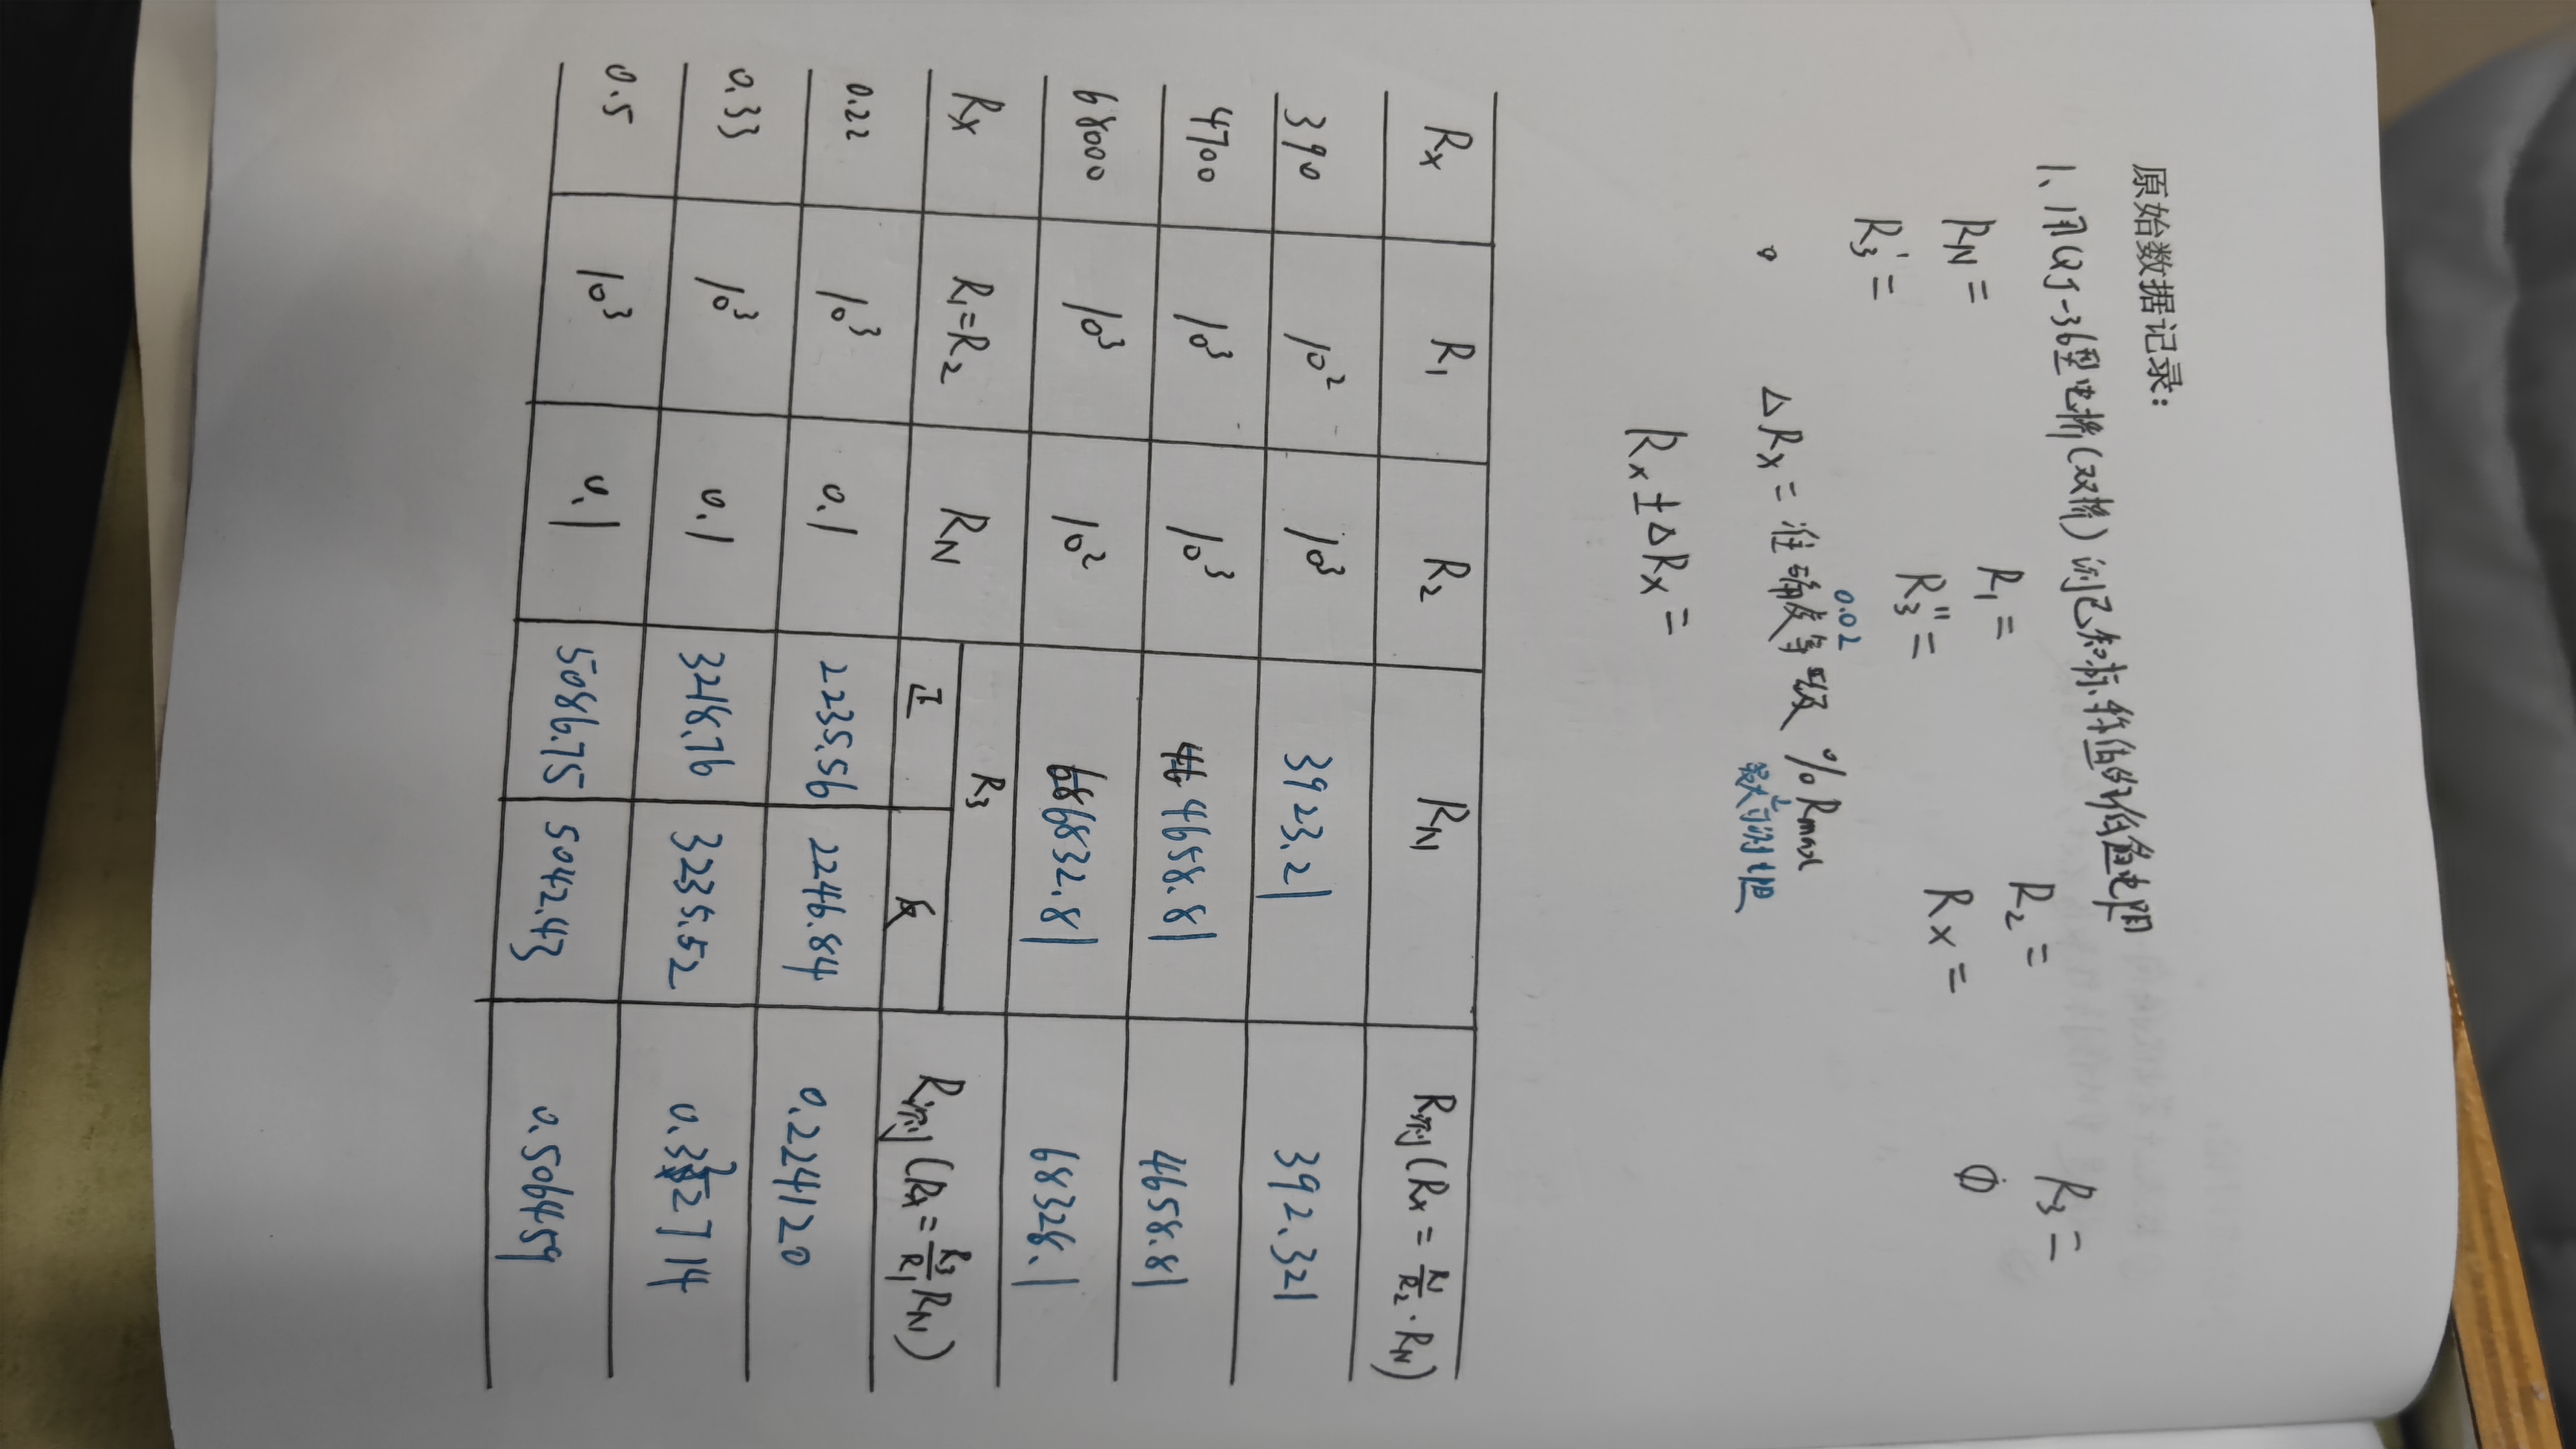 原始数据记录:
1、用QJ-36型电桥(双桥)测已知标称值的低值电阻
RN= R1= R2= R3=
R3'= R3''= Rx= φ
0.02
ΔRx=准确度等级 % Rmax
最大可测阻
Rx±ΔRx=
Rx R1 R2 RN R测(Rx=R1/R2·RN)
390 10² 10³ 3923.21 392.321
4700 10³ 10³ 4658.81 4658.81
68000 10³ 10² 6832.81 68328.1
Rx R1=R2 RN R3 R测(Rx=R3/R1 RN)
正 反
0.22 10³ 0.1 2235.56 2246.84 0.224120
0.33 10³ 0.1 3218.76 3235.52 0.322714
0.5 10³ 0.1 5086.75 5042.43 0.506459